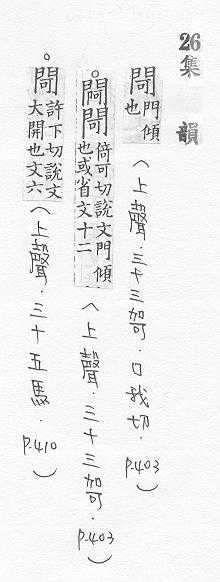 26 集韻
閜 門傾
也
(上聲.三十三哿.口我切.P.403)
。閜 倚可切說文門傾
也或省文十二
(上聲.三十三哿.P.403)
。閜 許下切說文
大開也文六
(上聲.三十五馬.P.410)